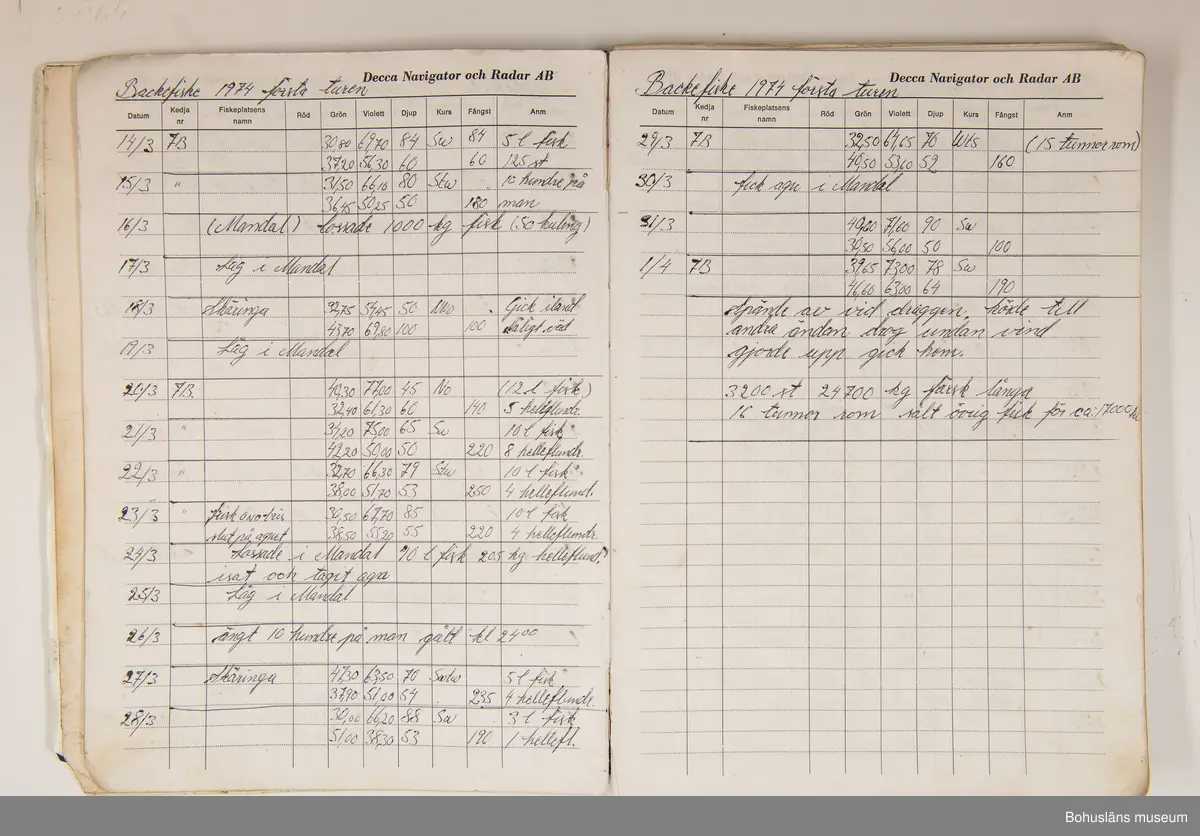 Decca Navigator och Radar AB
Backefiske 1974 första turen
Datum Kedja nr Fiskeplatsens namn Röd Grön Violett Djup Kurs Fångst Anm
14/3 7B 30,80 69,70 84 Sw 84 5 l fisk
37,20 56,30 60 60 125 st
15/3 " 31,50 66,10 80 Stw 10 hundre på
36,45 50,25 50 180 man
16/3 (Mandal) lossade 1000 kg fisk (50 kuling)
17/3 Låg i Mandal
18/3 Skäringa 32,75 54,45 50 Nno Gick iland
43,70 69,80 100 100 dåligt väd
19/3 Låg i Mandal
20/3 7B. 40,30 77,00 45 No (12 l fisk)
32,40 61,30 60 140 5 helleflundr.
21/3 " 31,20 75,00 65 Sw 10 l fisk
42,20 50,00 50 220 8 helleflundr.
22/3 " 32,70 66,30 79 Stw 10 l fisk
38,00 51,70 53 250 4 helleflund.
23/3 " fisk 30,50 67,70 85 10 l fisk
slut på agnet 38,50 55,20 55 220 4 helleflundr.
24/3 Lossade i Mandal 90 l fisk 205 kg helleflund.
isat och tagit agn
25/3 Låg i Mandal
26/3 ängt 10 hundre på man gått kl 24⁰⁰
27/3 Skäringa 47,30 63,50 70 5 l fisk
37,90 51,00 54 235 4 helleflundr.
28/3 30,00 66,20 88 Sw 3 l fisk
51,00 38,30 53 190 1 hellefl.
Decca Navigator och Radar AB
Backefiske 1974 första turen
Datum Kedja nr Fiskeplatsens namn Röd Grön Violett Djup Kurs Fångst Anm
29/3 7B 32,50 67,65 76 Wts (15 tunnor rom)
40,50 53,60 52 160
30/3 fick agn i Mandal
31/3 49,20 71,60 90 Sw
30,50 56,00 50 100
1/4 7B 39,65 73,00 78 Sw
46,60 63,00 64 190
spände av vid draggen. körde till
andra ändan drog undan vind
gjorde upp gick hem.
3200 st 24700 kg färsk långa
16 tunnor rom sålt övrig fisk för ca: 17000 kr
Bohusläns museum